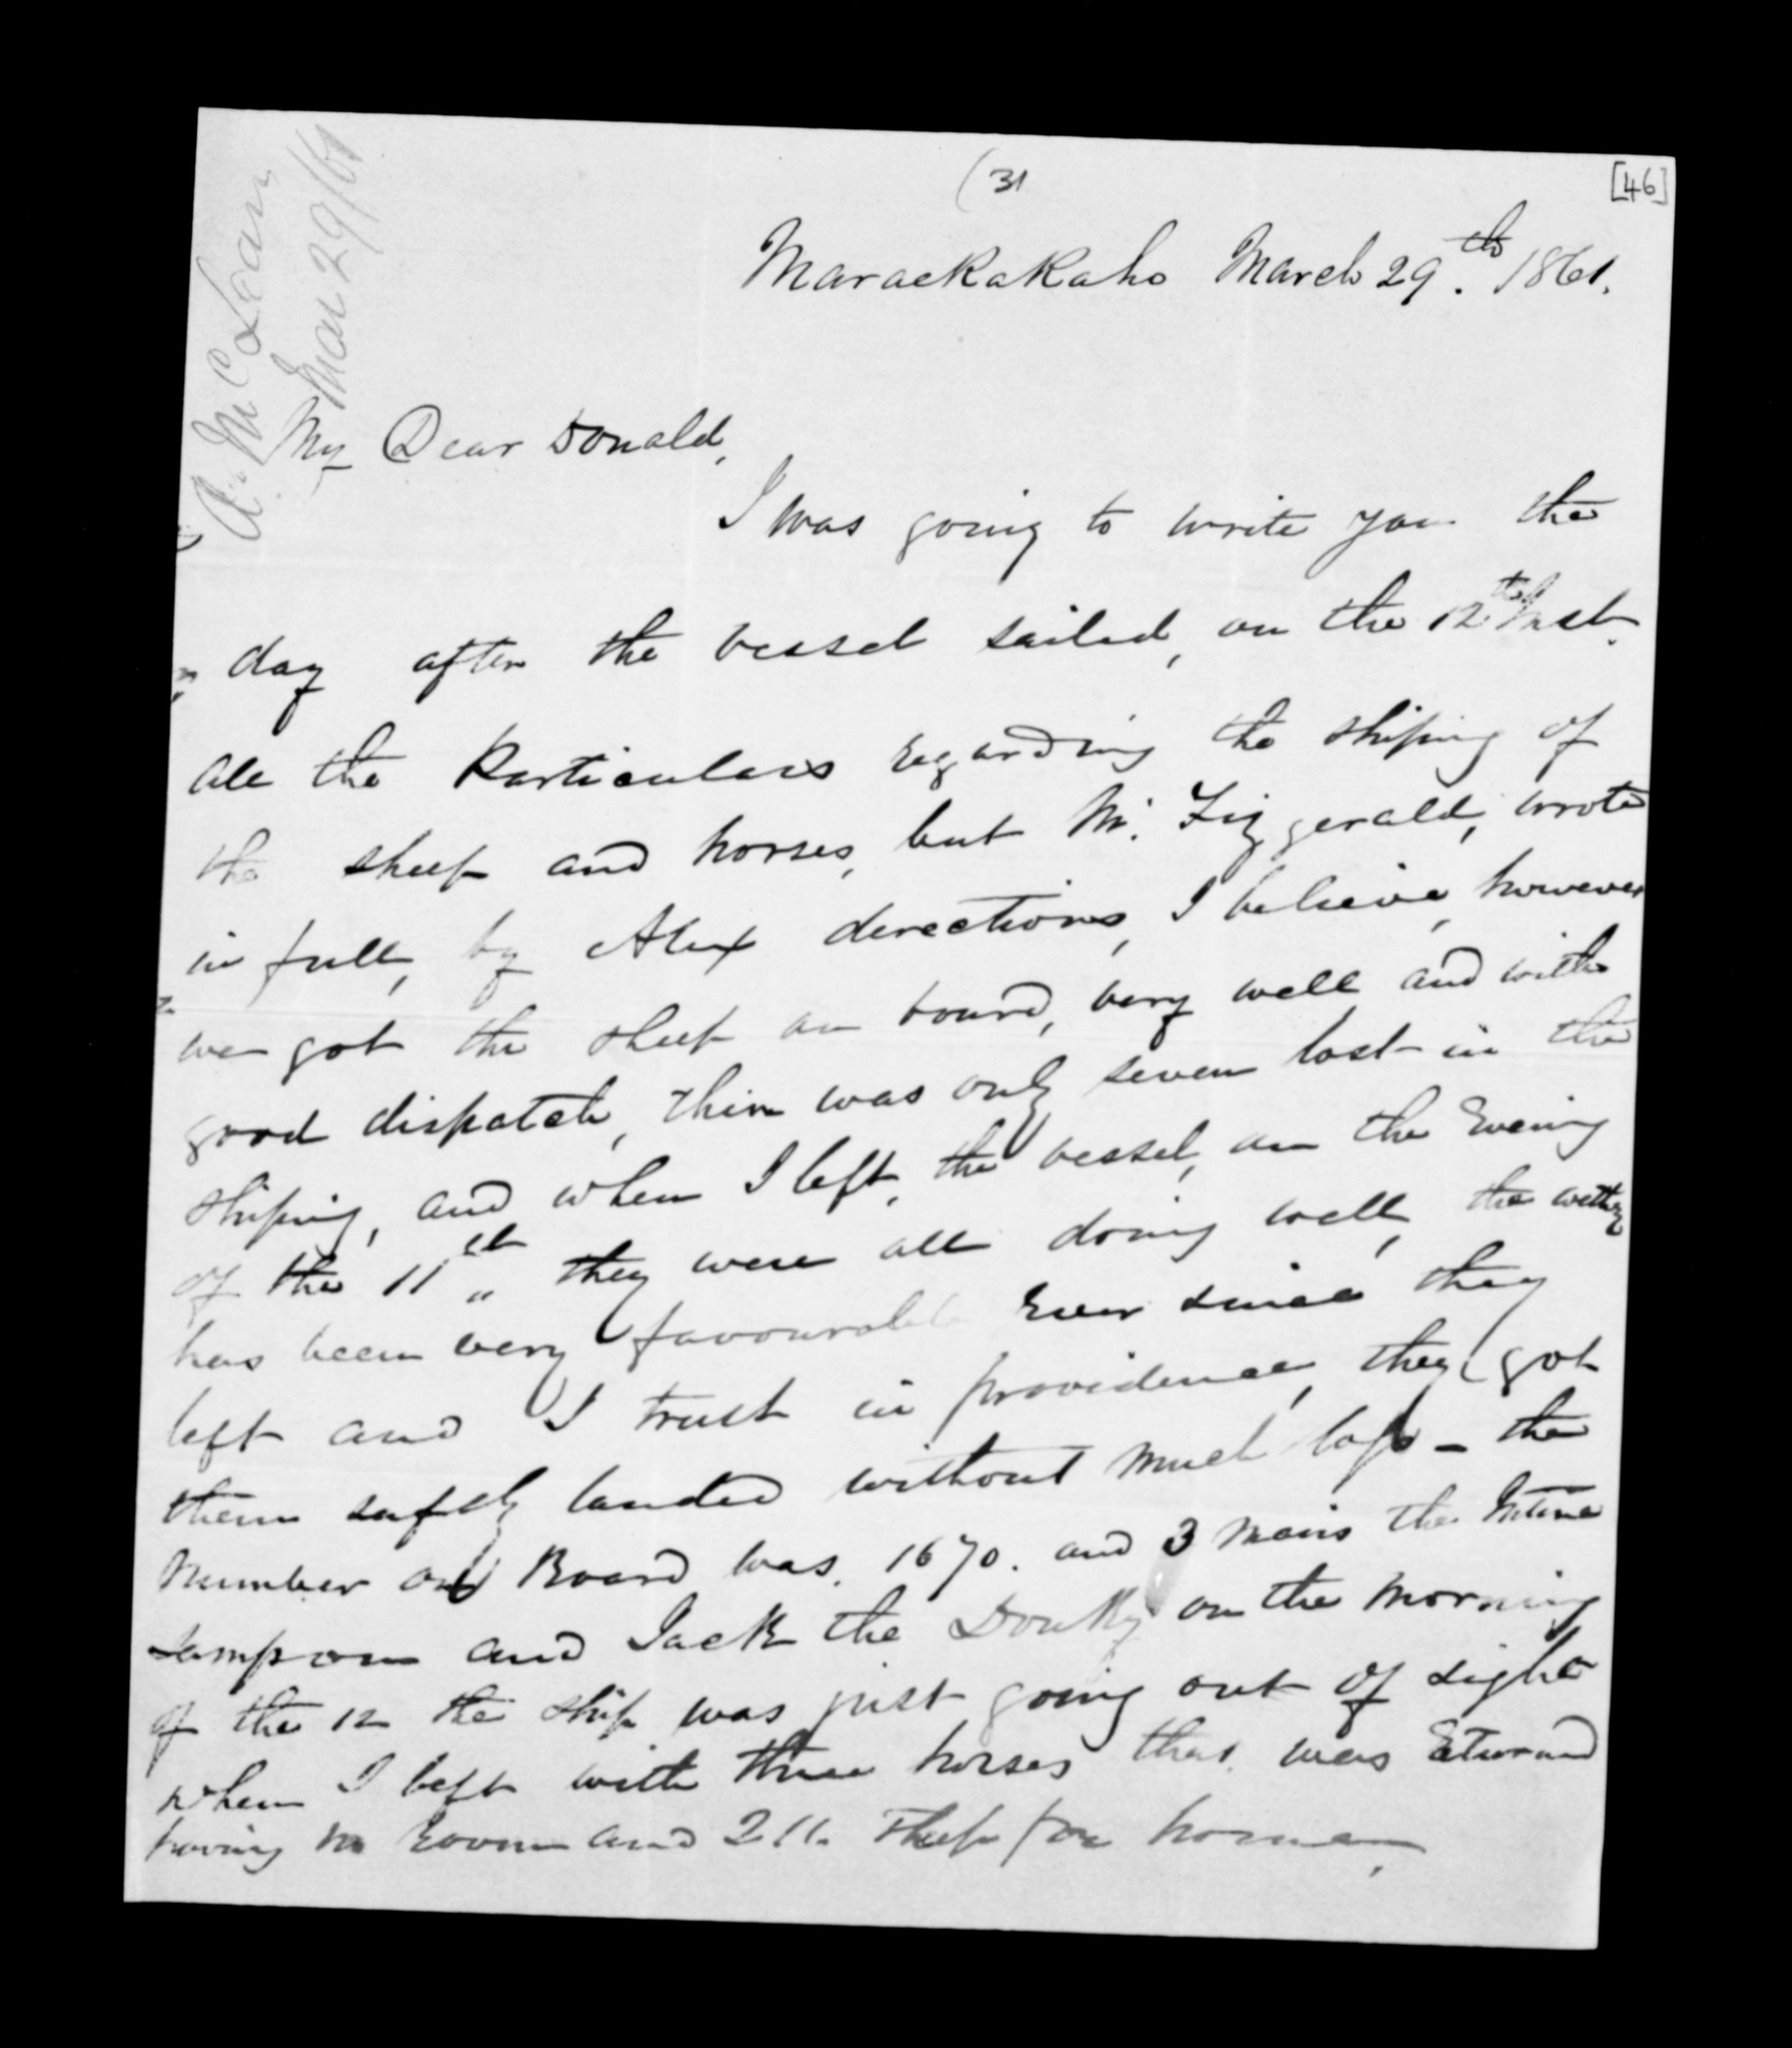 (31
[46]
A. McLean
Mar 29/61
Maraekakaho March 29th. 1861.
My Dear Donald,
I was going to write you the
day after the vessel sailed, on the 12th Inst.
all the Particulars regarding the shiping of
the sheep and horses, but Mr. Fizgerald, wrote
in full, by Alex directions, I believe, however
we got the sheep on board, very well and with
good dispatch, their was only seven lost in the
shiping, and when I left, the vessel, on the Evening
of the 11th they were all doing well, the
has been very favourable Ever since they
left and I trust in providence, they got
them safely landed without much loss - the
Number on Board was. 1670. and 3 Mairs the
Sampson and Jack the Donky on the Morning
of the 12 the ship was just going out of sight
when I left with three horses that was
having no room and 211 sheep for home,